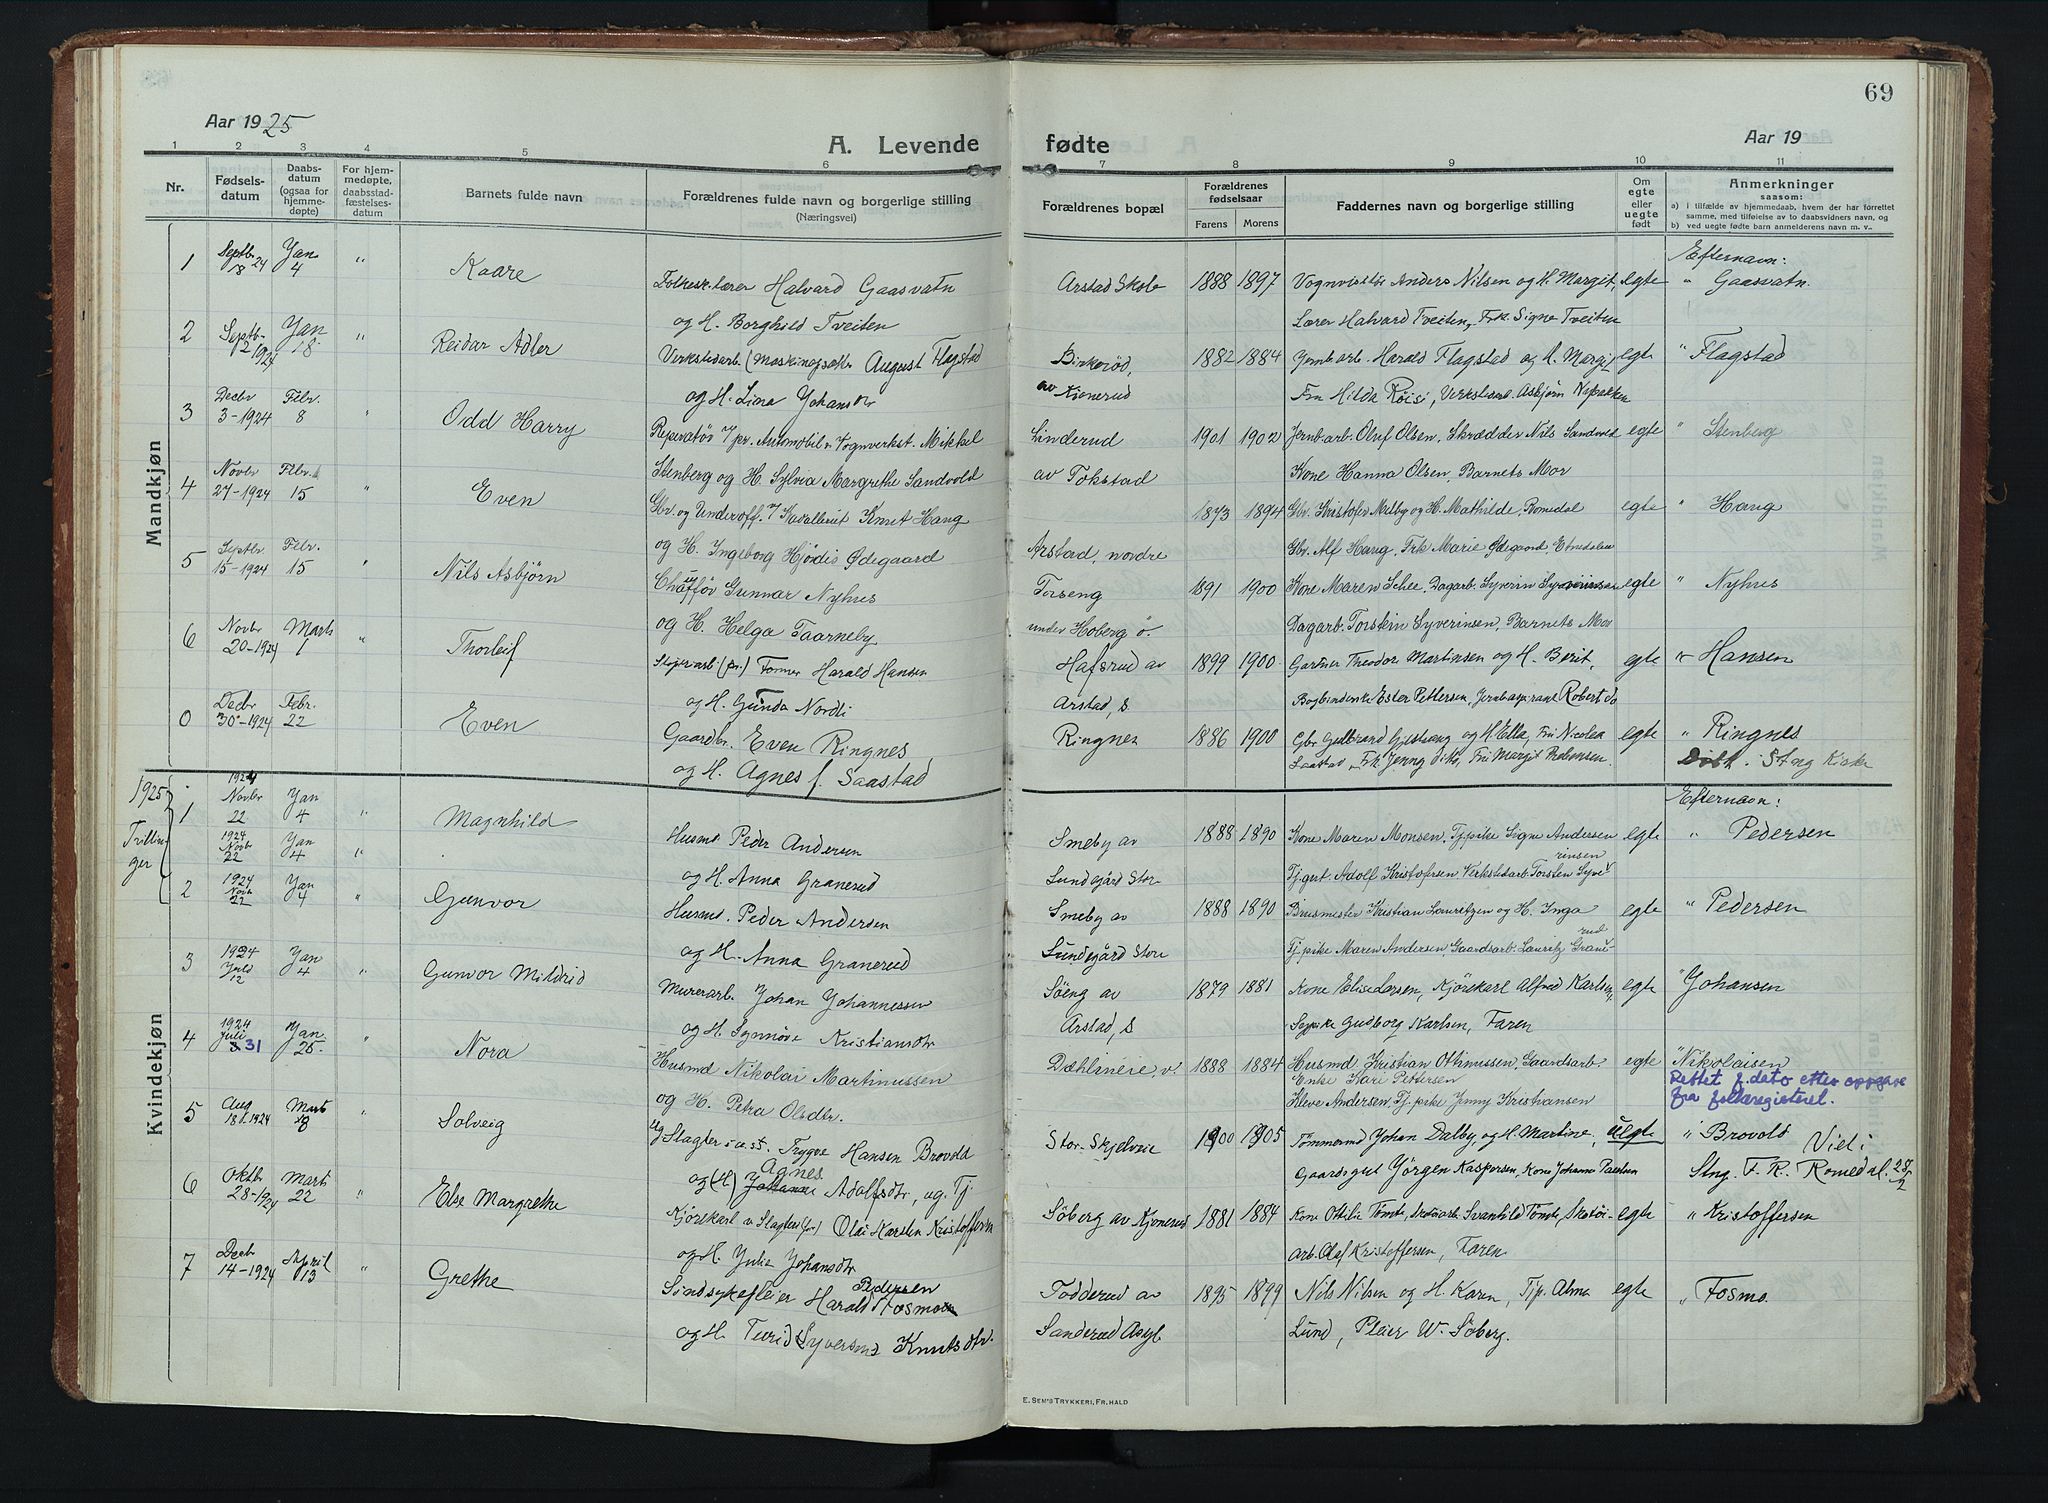 69
Aar 1925
A. Levende
fødte
Aar 19
1 2 3 4 5 6 7 8 9 10 11
Nr.
Fødselsdatum
Daabsdatum (ogsaa for hjemmedøpte)
For hjemmedøpte, daabsstadfæstelsesdatum
Barnets fulde navn
Forældrenes fulde navn og borgerlige stilling
(Næringsvei)
Forældrenes bopæl
Forældrenes fødselsaar
Farens Morens
Faddernes navn og borgerlige stilling
Om egte eller uegte født
Anmerkninger
saasom:
a) i tilfælde av hjemmedaab, hvem der har forrettet samme, med tilføielse av to daabsvidners navn, og
b) ved uegte fødte barn anmelderens navn m. v..
Mandkjøn
Efternavn:
1 Septbr 18 24 Jan 4 " Kaare Folkesk.lærer Halvard Gaasvatn Arstad Skole 1888 1897 Vognvisitør Anders Nilsen og H. Margit, egte " Gaasvatn.
og H. Borghild Tveiten Lærer Halvard Tveiten, Frk. Signe Tveiten
2 Septbr 2 1924 Jan 18 " Reidar Adler Verkstedarb. August Flagstad 1882 1884 Jernb.arb. Harald Flagstad og H. egte " Flagstad
og H. Lina Johansdtr av Kjonerud Fru Hilda Røisi, Verkstedarb. Asbjørn
3 Decbr 3-1924 Febr. 8 " Odd Harry Reperatør v/ pr. Automobil & Vognverkst. Mikkel Linderud 1901 1902 Jernb.arb. Oluf Olsen, Skrædder Nils Sandvold egte " Stenberg
Stenberg og H. Sylvia Margrethe Sandvold av Tokstad Kone Hanna Olsen, Barnets Mor
4 Novbr 27-1924 Febr. 15 " Even Gbr. og Underoff. v/ Kavalleriet Knut Hang 1873 1894 Gbr. Kristofer Melby og H. Mathilde, Romedal egte " Hang
og H. Ingeborg Hjørdis Ødegaard Arstad, nordre Gbr. Alf Hang, Frk Marie Ødegaard, Etnedalen
5 Septbr. 15-1924 Febr. 15 " Nils Asbjørn Chaufför Gunnar Nyhus Torseng 1891 1900 Kone Maren Schee, Dagarb. Syverin Syverinsen egte " Nyhus
og H. Helga Taarneby under Hoberg ö. Dagarb. Torstein Syverinsen, Barnets Mor
6 Novbr 20-1924 Marts 1 " Thorleif Harald Hansen Hafsrud av 1899 1900 Gartner Theodor Martinsen og H. Berit, egte " Hansen
og H. Gunda Nordli Arstad, s. Ester Pettersen, Robert do
0 Decbr 30-1924 Febr. 22 Even Gaardbr. Even Ringnes Ringnes 1886 1900 Gbr. Gulbrand Gjestvang og H. Ella, Fru Nicolea egte " Ringnes
og H. Agnes f. Saastad Saastad, Frk Jenny ditto, Fru Margit Thobensen. Døbt i Stng Kirke
Kvindekjøn
Efternavn:
1925 Tvillinger
1 1924 Novbr 22 Jan 4 " Magnhild Husmd Peder Andersen Smeby av 1888 1890 Kone Maren Monsen, Tj.pike Signe Andersen egte " Pedersen
1924 Novbr 22 Jan 4 " og H. Anna Granerud Lundegård Store Tj.gut Adolf Kristofersen, Verkstedarb. Torsten Syverinsen
2 1924 Novbr 22 Jan 4 " Gunvor Husmd. Peder Andersen Smeby av 1888 1890 Brusmester Kristian Lauritzen og H. Inga egte " Pedersen
og H. Anna Granerud Lundegård Store Tj.pike Maren Andersen, Gaardsarb. Lauritz Granerud
3 1924 12 Jan 4 " Gunvor Mildrid Murerarb. Johan Johannessen Söeng av 1879 1881 Kone Elise Larsen, Kjörekarl Alfred Karlsen, egte " Johansen
og H. Synnöve Kristiansdtr Arstad, s Gudborg Karlsen, Faren
4 1924 Juli 31 Jan 25. " Nora Husmd Nikolai Martinussen Dæhlineie, v. 1888 1884 Husmd Kristian Othinussen, Gaardsarb. egte " Nikolaisen
og H. Petra Olsdtr. Enke Kari Pettersen
Kleve Andersen Tj.pike Jenny Kristiansen
Rettet f. dato etter oppgave
fra folkeregisteret.
5 Aug 18-1924 Marts 8 " Solveig Ug Slagter i æ.st. Trygve Hansen Brovold Stor-Skjelveie 1900 1905 Tömmermd Johan Dalby, og H. Martine, uegte " Brovold Viet i
og (H) Agnes Johanne Adolfsdtr, ug. Tj Gaardsgut Jörgen Kaspersen, Kone Johanne Paulsen Stng. F. R. Romedal.
6 Oktbr 28-1924 Marts 22 " Else Margrethe Kjörekarl v Slagteri (pr) Olai Karsten Kristoffersen Söberg av Kjonerud 1881 1884 Kone Ottilie Tomte, Skotöiarb. Svanhild Tomte, Skotöi- egte " Kristoffersen
og H. Julie Johansdtr arb. Olaf Kristoffersen, Faren
7 Decbr 14-1924 April 13 " Grethe Sindsykepleier Harald Pedersen Fosmo Todderud av 1895 1899 Nils Nilsen og H. Karen, Tjp. Alma egte " Fosmo.
og H. Turid Syversens Knutsdtr. Sanderud Asyl Lund, Pleier W. Söberg.
E. SEM'S TRYKKERI, FR. HALD